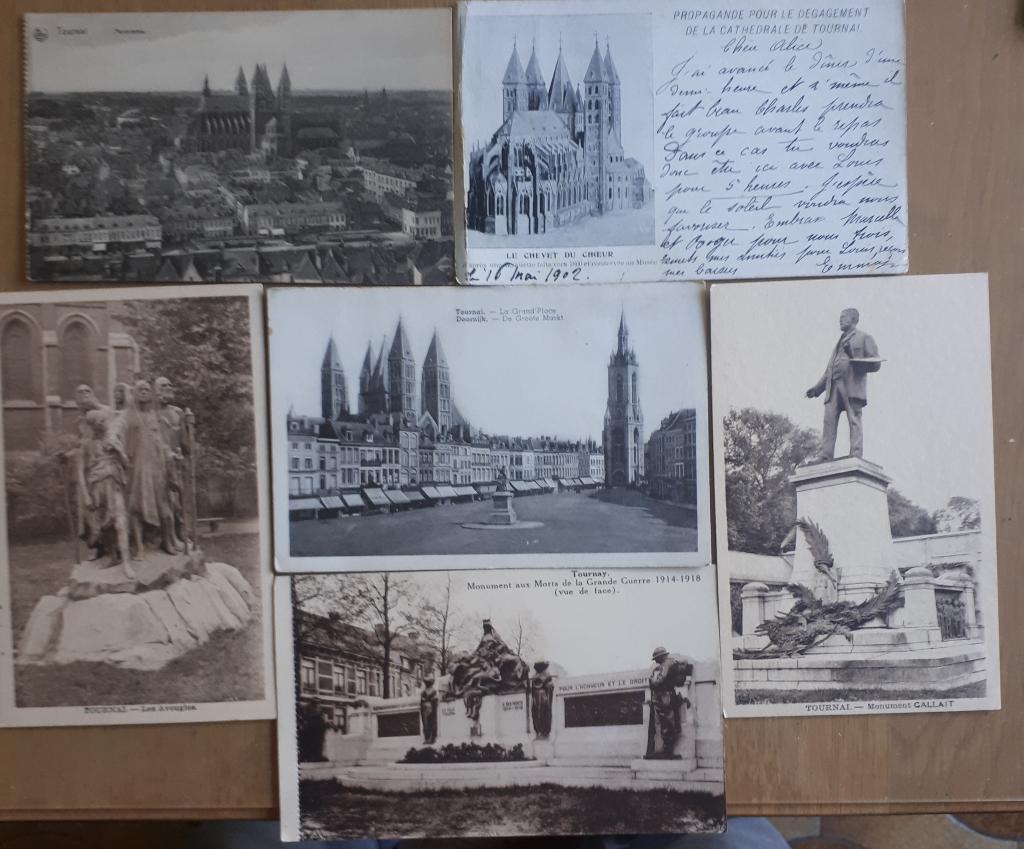 Tournai
Panorama.
PROPAGANDE POUR LE DÉGAGEMENT
DE LA CATHÉDRALE DE TOURNAI.
Chère Alice
J'ai avancé le dîner d'une
demi-heure et si même il
faut Charles prendra
le groupe avant le repas
Dans ce cas tu voudras
donc être ici avec Louis
pour 5 heures. J'espère
que le soleil voudra nous
favoriser. Embras Marcelle
et pour nous trois,
mes amitiés pour Louis, reçois
mes baisers
Emma
LE CHEVET DU CHŒUR
d'après une maquette faite vers 1800 et conservée au Musée
16 Mai 1902.
Tournai. — La Grand'Place
Doornijk. — De Groote Markt
TOURNAI. — Les Aveugles.
TOURNAI. — Monument GALLAIT
Tournay.
Monument aux Morts de la Grande Guerre 1914-1918
(vue de face).
POUR L'HONNEUR ET LE DROIT